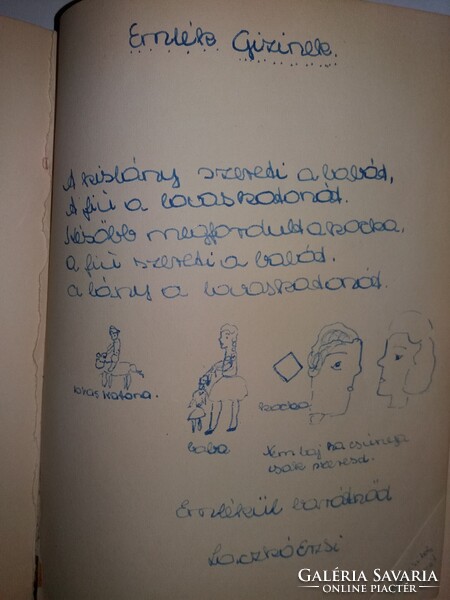 Emlék Gizinek.
A kislány szereti a babát,
A fiú a lovaskatonát.
Később megfordult a kocka.
a fiú szereti a babát,
a lány a lovaskatonát.
lovas katona.
baba
kocka
Nem baj ha csúnya
csak szeresd.
Emlékül barátnőd
Laczkó Erzsi
GALÉRIA SAVARIA
ONLINE PIACTÉR